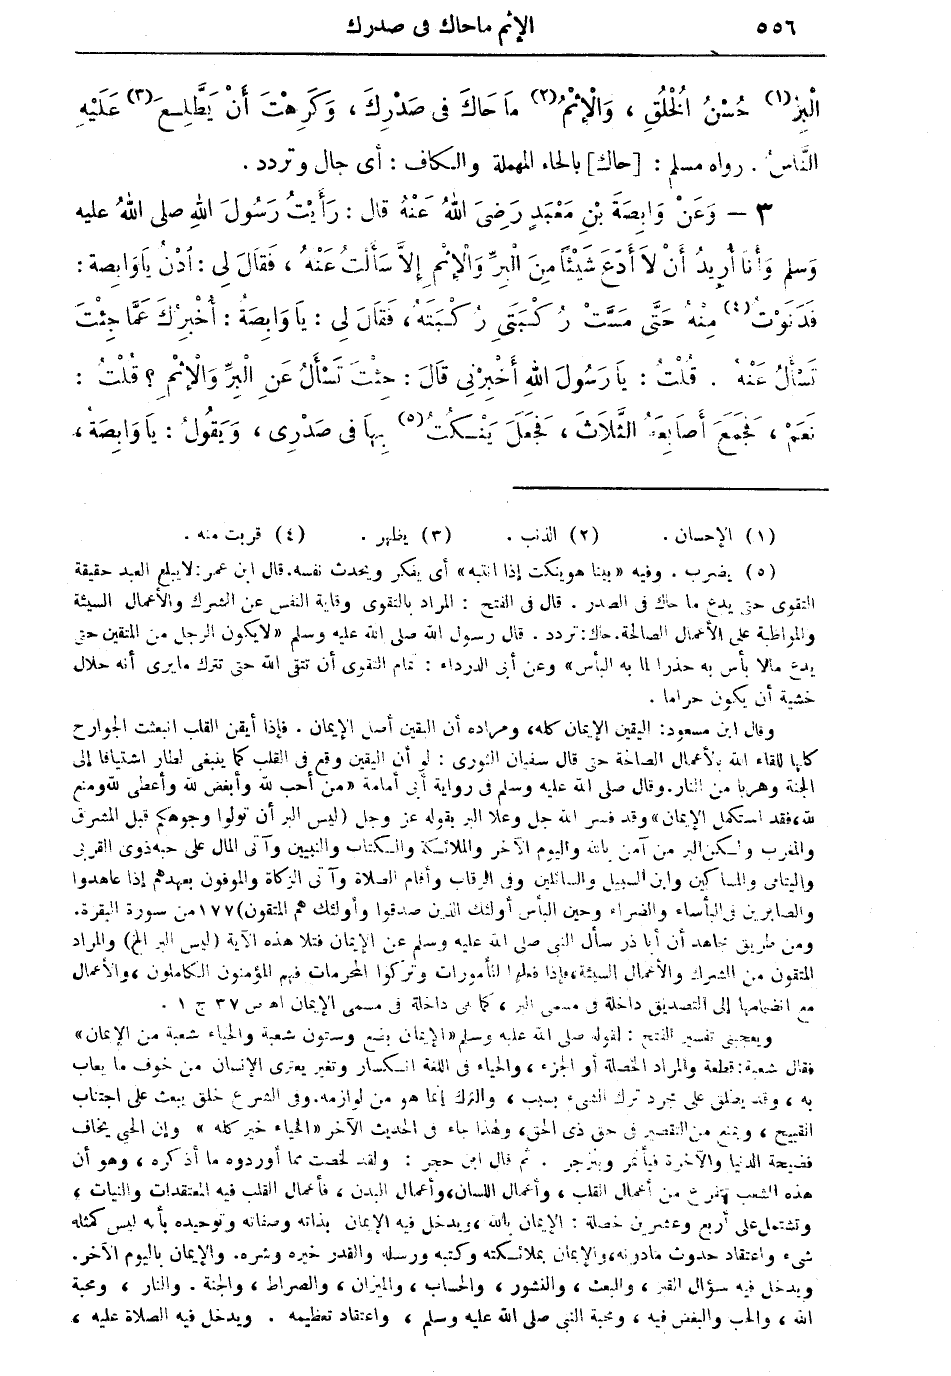 ٥٥٦ الإثم ماحاك فى صدرك
الْبِرُّ (١) حُسْنُ الْخُلُقِ ، وَالْإِثْمُ (٢) مَا حَاكَ فى صَدْرِكَ ، وَكَرِهْتَ أَنْ يَطَّلِعَ (٣) عَلَيْهِ
النَّاسُ . رواه مسلم : [حاك] بالحاء المهملة والكاف : أى جال وتردد .
٣ – وَعَنْ وَابِصَةَ بْنِ مَعْبَدٍ رَضِىَ اللهُ عَنْهُ قال : رَأَيْتُ رَسُولَ اللهِ صلى اللهُ عليه
وَسلم وَأَنَا أُرِيدُ أَنْ لاَ أَدَعَ شَيْئًا مِنَ الْبِرِّ وَالْإِثْمِ إِلاَّ سَأَلْتُ عَنْهُ ، فَقَالَ لِى : ادْنُ يَاوَابِصة :
فَدَنَوْتُ (٤) مِنْهُ حَتَّى مَسَّتْ رُكْبَتِى رُكْبَتَهُ ، فَقَالَ لِى : يَا وَابِصَةُ : أُخْبِرُكَ عَمَّا جِئْتَ
تَسْأَلُ عَنْهُ . قُلْتُ : يَا رَسُولَ اللهِ أَخْبِرْنِى قَالَ : جِئْتَ تَسْأَلُ عَنِ الْبِرِّ وَالْإِثْمِ ؟ قُلْتُ :
نَعَمْ ، فَجَمَعَ أَصَابِعَهُ الثَّلَاثَ ، فَجَعَلَ يَنْكُتُ (٥) بِهَا فى صَدْرِى ، وَيَقُولُ : يَا وَابِصَةُ ،
(١) الإحسان . (٢) الذنب . (٣) يظهر . (٤) قربت منه .
(٥) يضرب . وفيه «بينا هو ينكت إذا انتبه» أى يفكر ويحدث نفسه. قال ابن عمر: لا يبلغ العبد حقيقة
التقوى حتى يدع ما حاك فى الصدر . قال فى الفتح : المراد بالتقوى وقاية النفس عن الشرك والأعمال السيئة
والمواظبة على الأعمال الصالحة. حاك: تردد . قال رسول الله صلى الله عليه وسلم «لايكون الرجل من المتقين حتى
يدع مالا بأس به حذرا لما به البأس» وعن أبى الدرداء : تمام التقوى أن تتقى الله حتى تترك مايرى أنه حلال
خشية أن يكون حراما .
وقال ابن مسعود: اليقين الإيمان كله، ومراده أن اليقين أصل الإيمان . فإذا أيقن القلب انبعثت الجوارح
كلها للقاء الله بالأعمال الصالحة حتى قال سفيان الثورى : لو أن اليقين وقع فى القلب كما ينبغى لطار اشتياقا إلى
الجنة وهربا من النار. وقال صلى الله عليه وسلم فى رواية أبى أمامة «من أحب لله وأبغض لله وأعطى لله ومنع
لله، فقد استكمل الإيمان» وقد فسر الله جل وعلا البر بقوله عز وجل (ليس البر أن تولوا وجوهكم قبل المشرق
والمغرب ولكن البر من آمن بالله واليوم الآخر والملائكة والكتاب والنبيين وآتى المال على حبه ذوى القربى
واليتامى والمساكين وابن السبيل والسائلين وفى الرقاب وأقام الصلاة وآتى الزكاة والموفون بعهدهم إذا عاهدوا
والصابرين فى البأساء والضراء وحين البأس أولئك الذين صدقوا وأولئك هم المتقون) ١٧٧ من سورة البقرة.
ومن طريق مجاهد أن أبا ذر سأل النبى صلى الله عليه وسلم عن الإيمان فتلا هذه الآية (ليس البر الخ) والمراد
المتقون من الشرك والأعمال السيئة، فإذا فعلوا المأمورات وتركوا المحرمات فهم المؤمنون الكاملون ، والأعمال
مع انضمامها إلى التصديق داخلة فى مسمى البر ، كما هى داخلة فى مسمى الإيمان اه ص ٣٧ ج ١ .
ويعجبنى تفسير الفتح : لقوله صلى الله عليه وسلم «الإيمان بضع وستون شعبة والحياء شعبة من الإيمان»
فقال شعبة: قطعة والمراد الخصلة أو الجزء ، والحياء فى اللغة انكسار وتغير يعترى الإنسان من خوف ما يعاب
به ، وقد يطلق على مجرد ترك الشىء بسبب ، والترك إنما هو من لوازمه. وفى الشرع خلق يبعث على اجتناب
القبيح ، ويمنع من التقصير فى حق ذى الحق، ولهذا جاء فى الحديث الآخر «الحياء خير كله » وإن الحيى يخاف
فضيحة الدنيا والآخرة فيأتمر وينزجر . ثم قال ابن حجر : ولقد لخصت مما أوردوه ما أذكره ، وهو أن
هذه الشعب تتفرع من أعمال القلب ، وأعمال اللسان، وأعمال البدن ، فأعمال القلب فيه المعتقدات والنيات ،
وتشتمل على أربع وعشرين خصلة : الإيمان بالله ، ويدخل فيه الإيمان بذاته وصفاته وتوحيده بأنه ليس كمثله
شىء واعتقاد حدوث مادونه، والإيمان بملائكته وكتبه ورسله والقدر خيره وشره. والإيمان باليوم الآخر.
ويدخل فيه سؤال القبر ، والبعث ، والنشور ، والحساب ، والميزان ، والصراط ، والجنة . والنار ، ومحبة
الله ، والحب والبغض فيه ، ومحبة النبى صلى الله عليه وسلم ، واعتقاد تعظيمه . ويدخل فيه الصلاة عليه ،